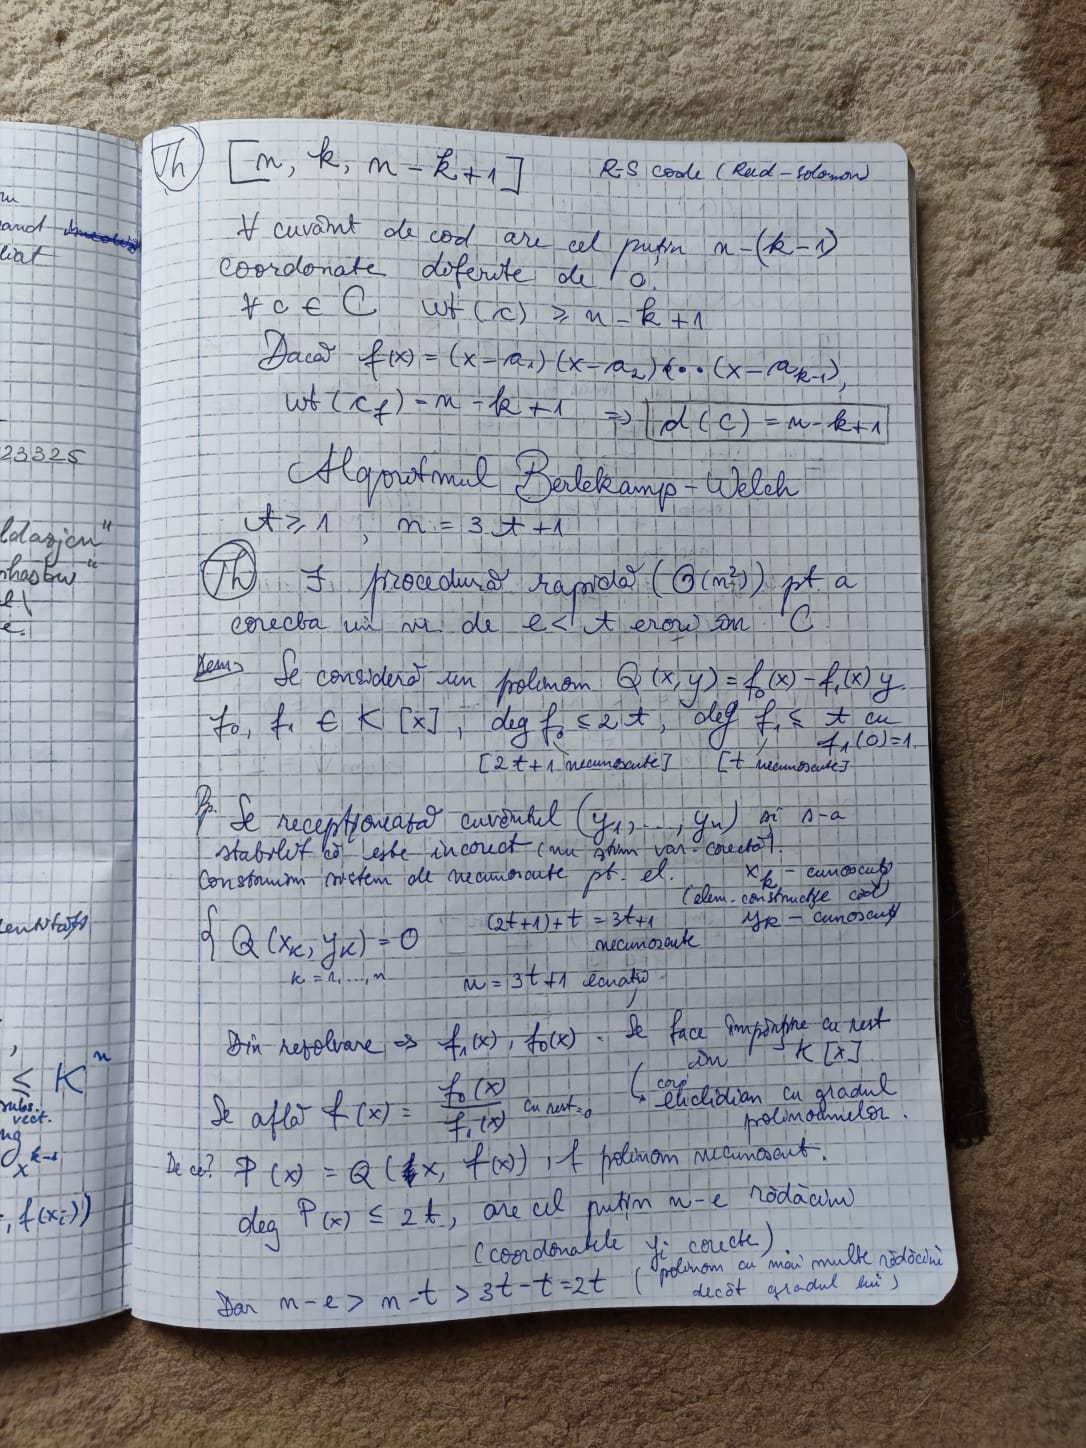 Th [n, k, n-k+1] R-S code (Reed-Solomon)
∀ cuvânt de cod are cel puțin n-(k-1)
coordonate diferite de 0.
∀ c ∈ C wt(c) ≥ n-k+1
Dacă f(x) = (x-a₁)(x-a₂)(...(x-a_{k-1}),
wt(c_f) = n-k+1 => d(C) = n-k+1
Algoritmul Berlekamp-Welch
t ≥ 1, n = 3t+1
Th ∃ procedură rapidă (O(n²)) pt. a
corecta un nr. de e < t erori în C
Dem> Se consideră un polinom Q(x,y) = f₀(x) - f₁(x) y.
f₀, f₁ ∈ K[x], deg f₀ ≤ 2t, deg f₁ ≤ t cu
f₁(0)=1.
[2t+1 necunoscute] [t necunoscute]
Pp. Se recepționează cuvântul (y₁,...,yₙ) și s-a
stabilit că este incorect (nu știm var. corectă).
Construim sistem de necunoscute pt. el.
x_k - cunoscuți
(elem. construcție cod)
y_k - cunoscuți
{ Q(x_k, y_k) = 0
k = 1,...,n
(2t+1)+t = 3t+1
necunoscute
n = 3t+1 ecuații
Din rezolvare => f₁(x), f₀(x). Se face împărțire cu rest
în K[x].
Se află f(x) = f₀(x)/f₁(x) cu rest=0
euclidian cu gradul
polinoamelor.
De ce? P(x) = Q(x, f(x)), f polinom necunoscut.
deg P(x) ≤ 2t, are cel puțin n-e rădăcini
(coordonatele yᵢ corecte)
Dar n-e > n-t > 3t-t = 2t (polinom cu mai multe rădăcini
decât gradul lui)
and
liat
23325
≤ Kⁿ
subs.
vect.
x^{k-1}
, f(xᵢ))